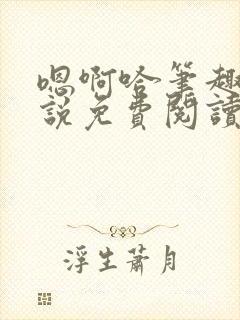 嗯啊哈筆趣
說免費閱讀
浮生蕭月